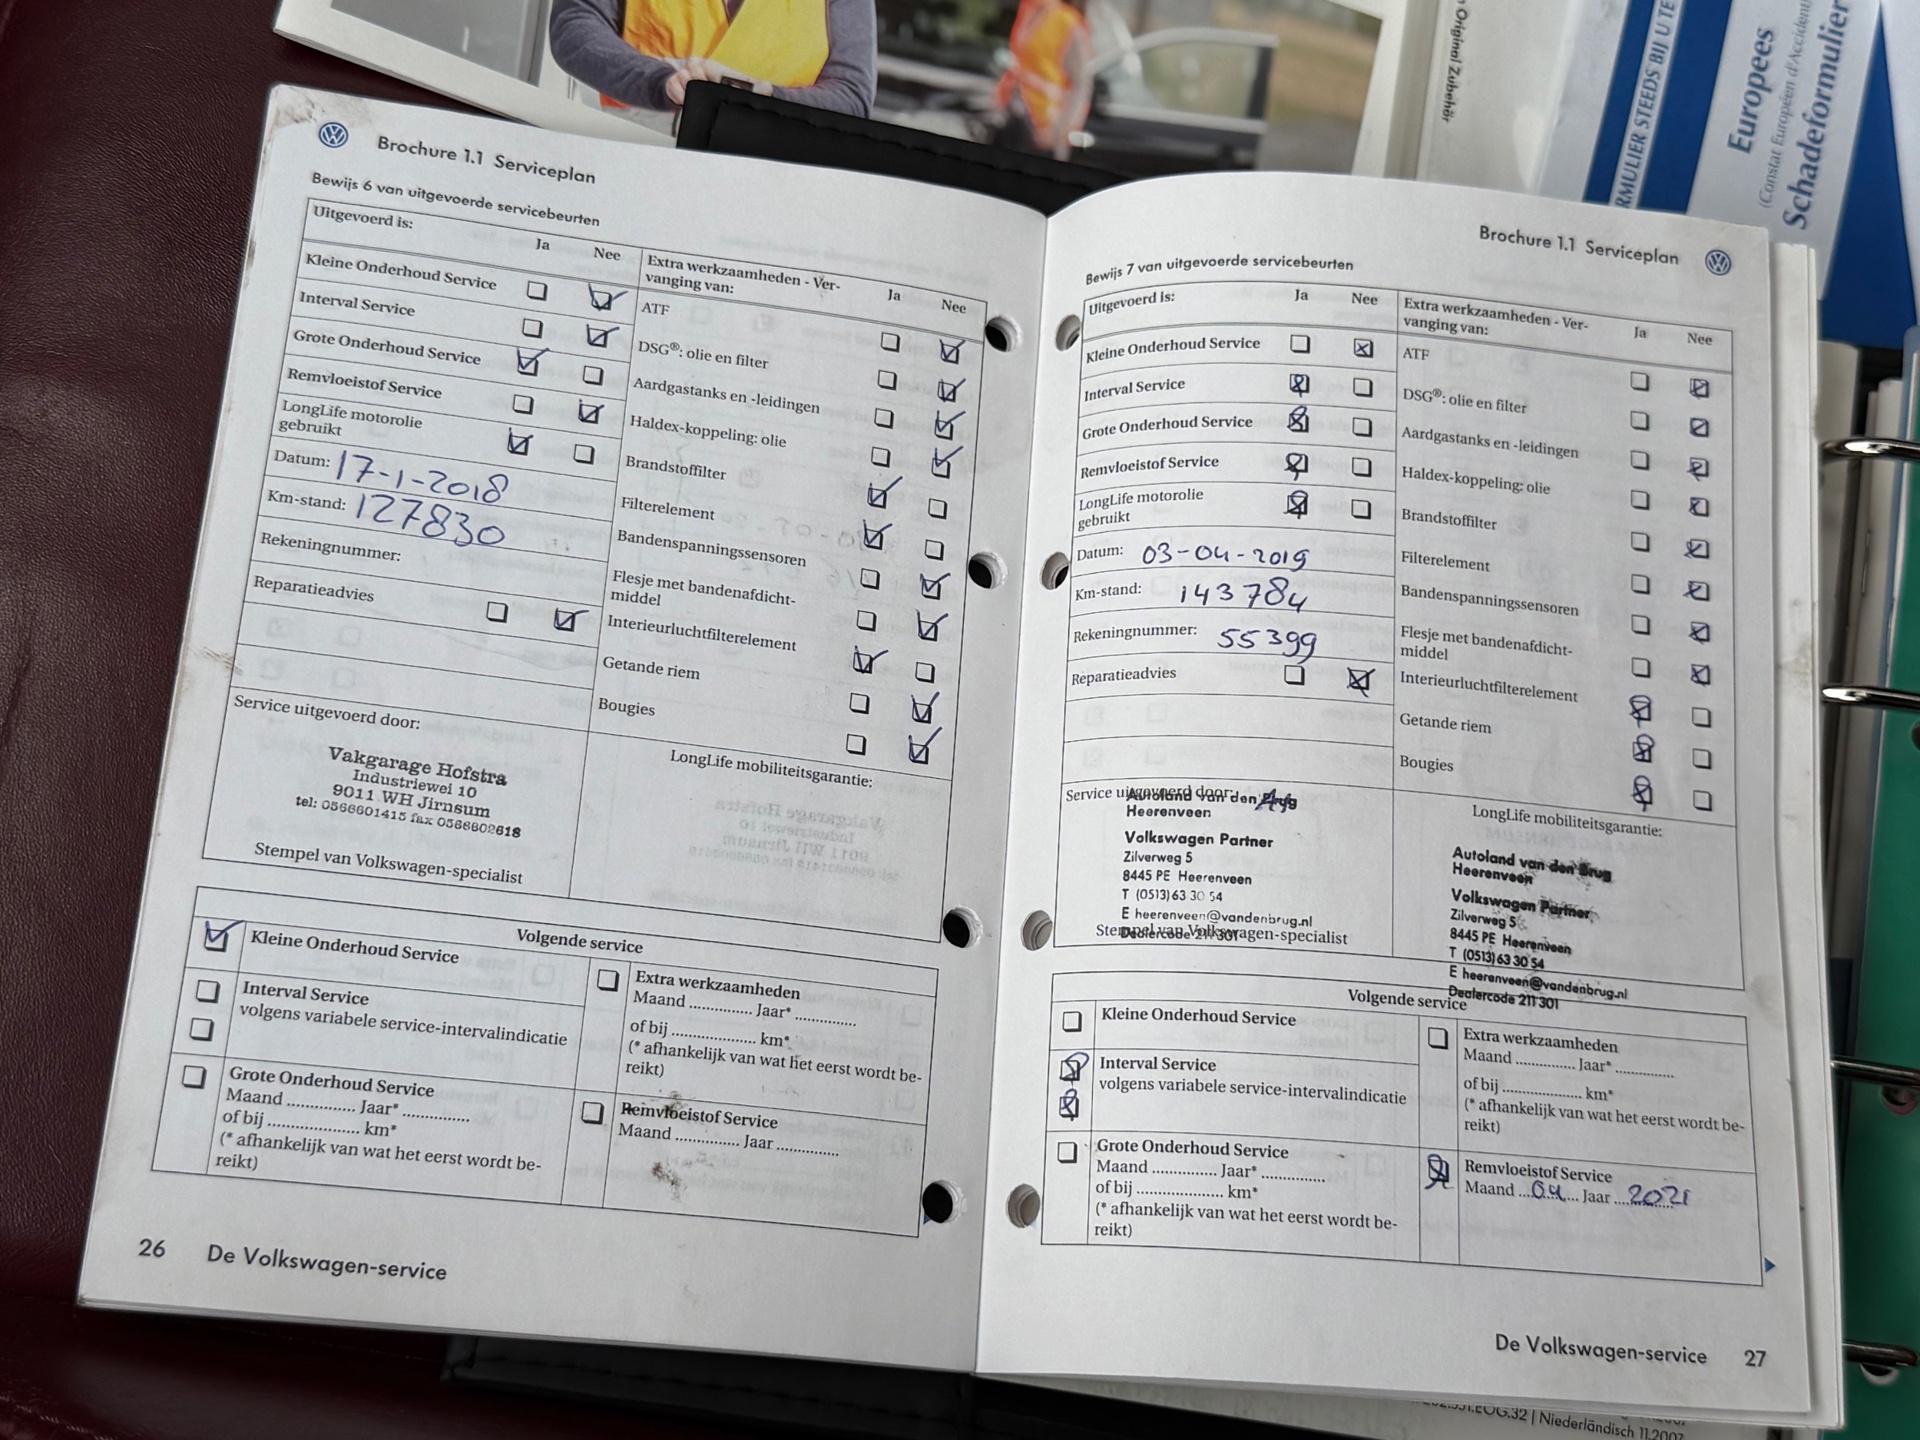 n Original Zubehör
RMULIER STEEDS BIJ U TE
Europees
(Constat Européen d'Accident
Schadeformulier
Brochure 1.1 Serviceplan
Bewijs 6 van uitgevoerde servicebeurten
Uitgevoerd is:
Ja Nee
Kleine Onderhoud Service
Interval Service
Grote Onderhoud Service
Remvloeistof Service
LongLife motorolie
gebruikt
Datum: 17-1-2018
Km-stand: 127830
Rekeningnummer:
Reparatieadvies
Extra werkzaamheden - Ver-
vanging van:
Ja Nee
ATF
DSG®: olie en filter
Aardgastanks en -leidingen
Haldex-koppeling: olie
Brandstoffilter
Filterelement
Bandenspanningssensoren
Flesje met bandenafdicht-
middel
Interieurluchtfilterelement
Getande riem
Bougies
Service uitgevoerd door:
Vakgarage Hofstra
Industriewei 10
9011 WH Jirnsum
tel: 0566601415 fax 0566602618
Stempel van Volkswagen-specialist
LongLife mobiliteitsgarantie:
Volgende service
Kleine Onderhoud Service
Interval Service
volgens variabele service-intervalindicatie
Grote Onderhoud Service
Maand ............... Jaar* ...............
of bij .................... km*
(* afhankelijk van wat het eerst wordt be-
reikt)
Extra werkzaamheden
Maand .............. Jaar* ..............
of bij ................... km*
(* afhankelijk van wat het eerst wordt be-
reikt)
Remvloeistof Service
Maand .............. Jaar ..............
26 De Volkswagen-service
Brochure 1.1 Serviceplan
Bewijs 7 van uitgevoerde servicebeurten
Uitgevoerd is:
Ja Nee
Kleine Onderhoud Service
Interval Service
Grote Onderhoud Service
Remvloeistof Service
LongLife motorolie
gebruikt
Datum: 03-04-2019
Km-stand: 143784
Rekeningnummer: 55399
Reparatieadvies
Extra werkzaamheden - Ver-
vanging van:
Ja Nee
ATF
DSG®: olie en filter
Aardgastanks en -leidingen
Haldex-koppeling: olie
Brandstoffilter
Filterelement
Bandenspanningssensoren
Flesje met bandenafdicht-
middel
Interieurluchtfilterelement
Getande riem
Bougies
Service uitgevoerd door:
Autoland van den Brug
Heerenveen
Volkswagen Partner
Zilverweg 5
8445 PE Heerenveen
T (0513) 63 30 54
E heerenveen@vandenbrug.nl
Dealercode 211 301
Stempel van Volkswagen-specialist
LongLife mobiliteitsgarantie:
Autoland van den Brug
Heerenveen
Volkswagen Partner
Zilverweg 5
8445 PE Heerenveen
T (0513) 63 30 54
E heerenveen@vandenbrug.nl
Dealercode 211 301
Volgende service
Kleine Onderhoud Service
Interval Service
volgens variabele service-intervalindicatie
Grote Onderhoud Service
Maand ............... Jaar* ...............
of bij .................... km*
(* afhankelijk van wat het eerst wordt be-
reikt)
Extra werkzaamheden
Maand .............. Jaar* ..............
of bij ................... km*
(* afhankelijk van wat het eerst wordt be-
reikt)
Remvloeistof Service
Maand ...04... Jaar ...2021
De Volkswagen-service 27
.EOG.32 | Niederländisch 11.2007